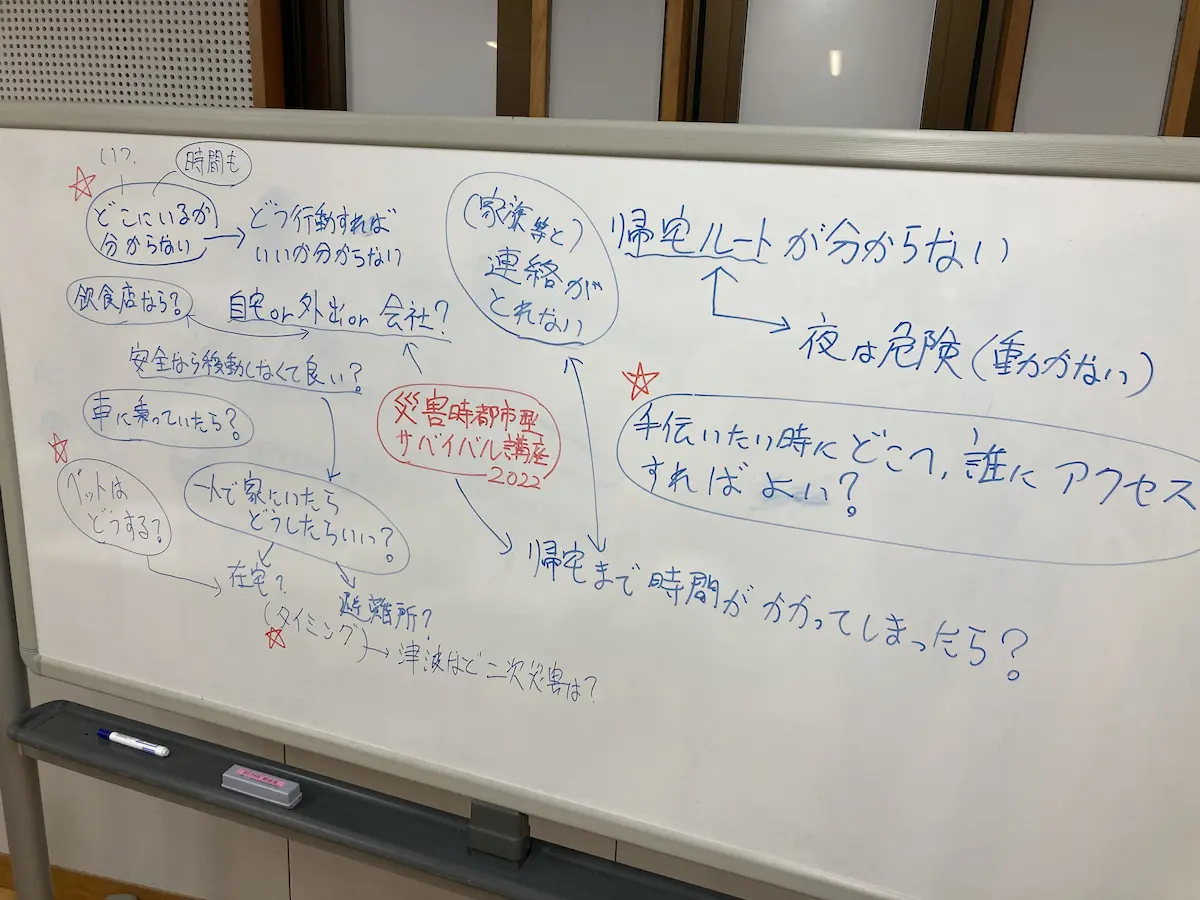 いつ?
時間も
どこにいるか
分からない
どう行動すれば
いいか分からない
飲食店なら?
自宅or外出or会社?
安全なら移動しなくて良い?
車に乗っていたら?
ペットは
どうする?
一人で家にいたら
どうしたらいいっ?
在宅?
避難所?
(タイミング)
津波など二次災害は?
災害時都市型
サバイバル講座
2022
(家族等と)
連絡が
とれない
帰宅ルートが分からない
夜は危険(動かない)
手伝いたい時にどこへ,誰にアクセス
すればよい?
帰宅まで時間がかかってしまったら?